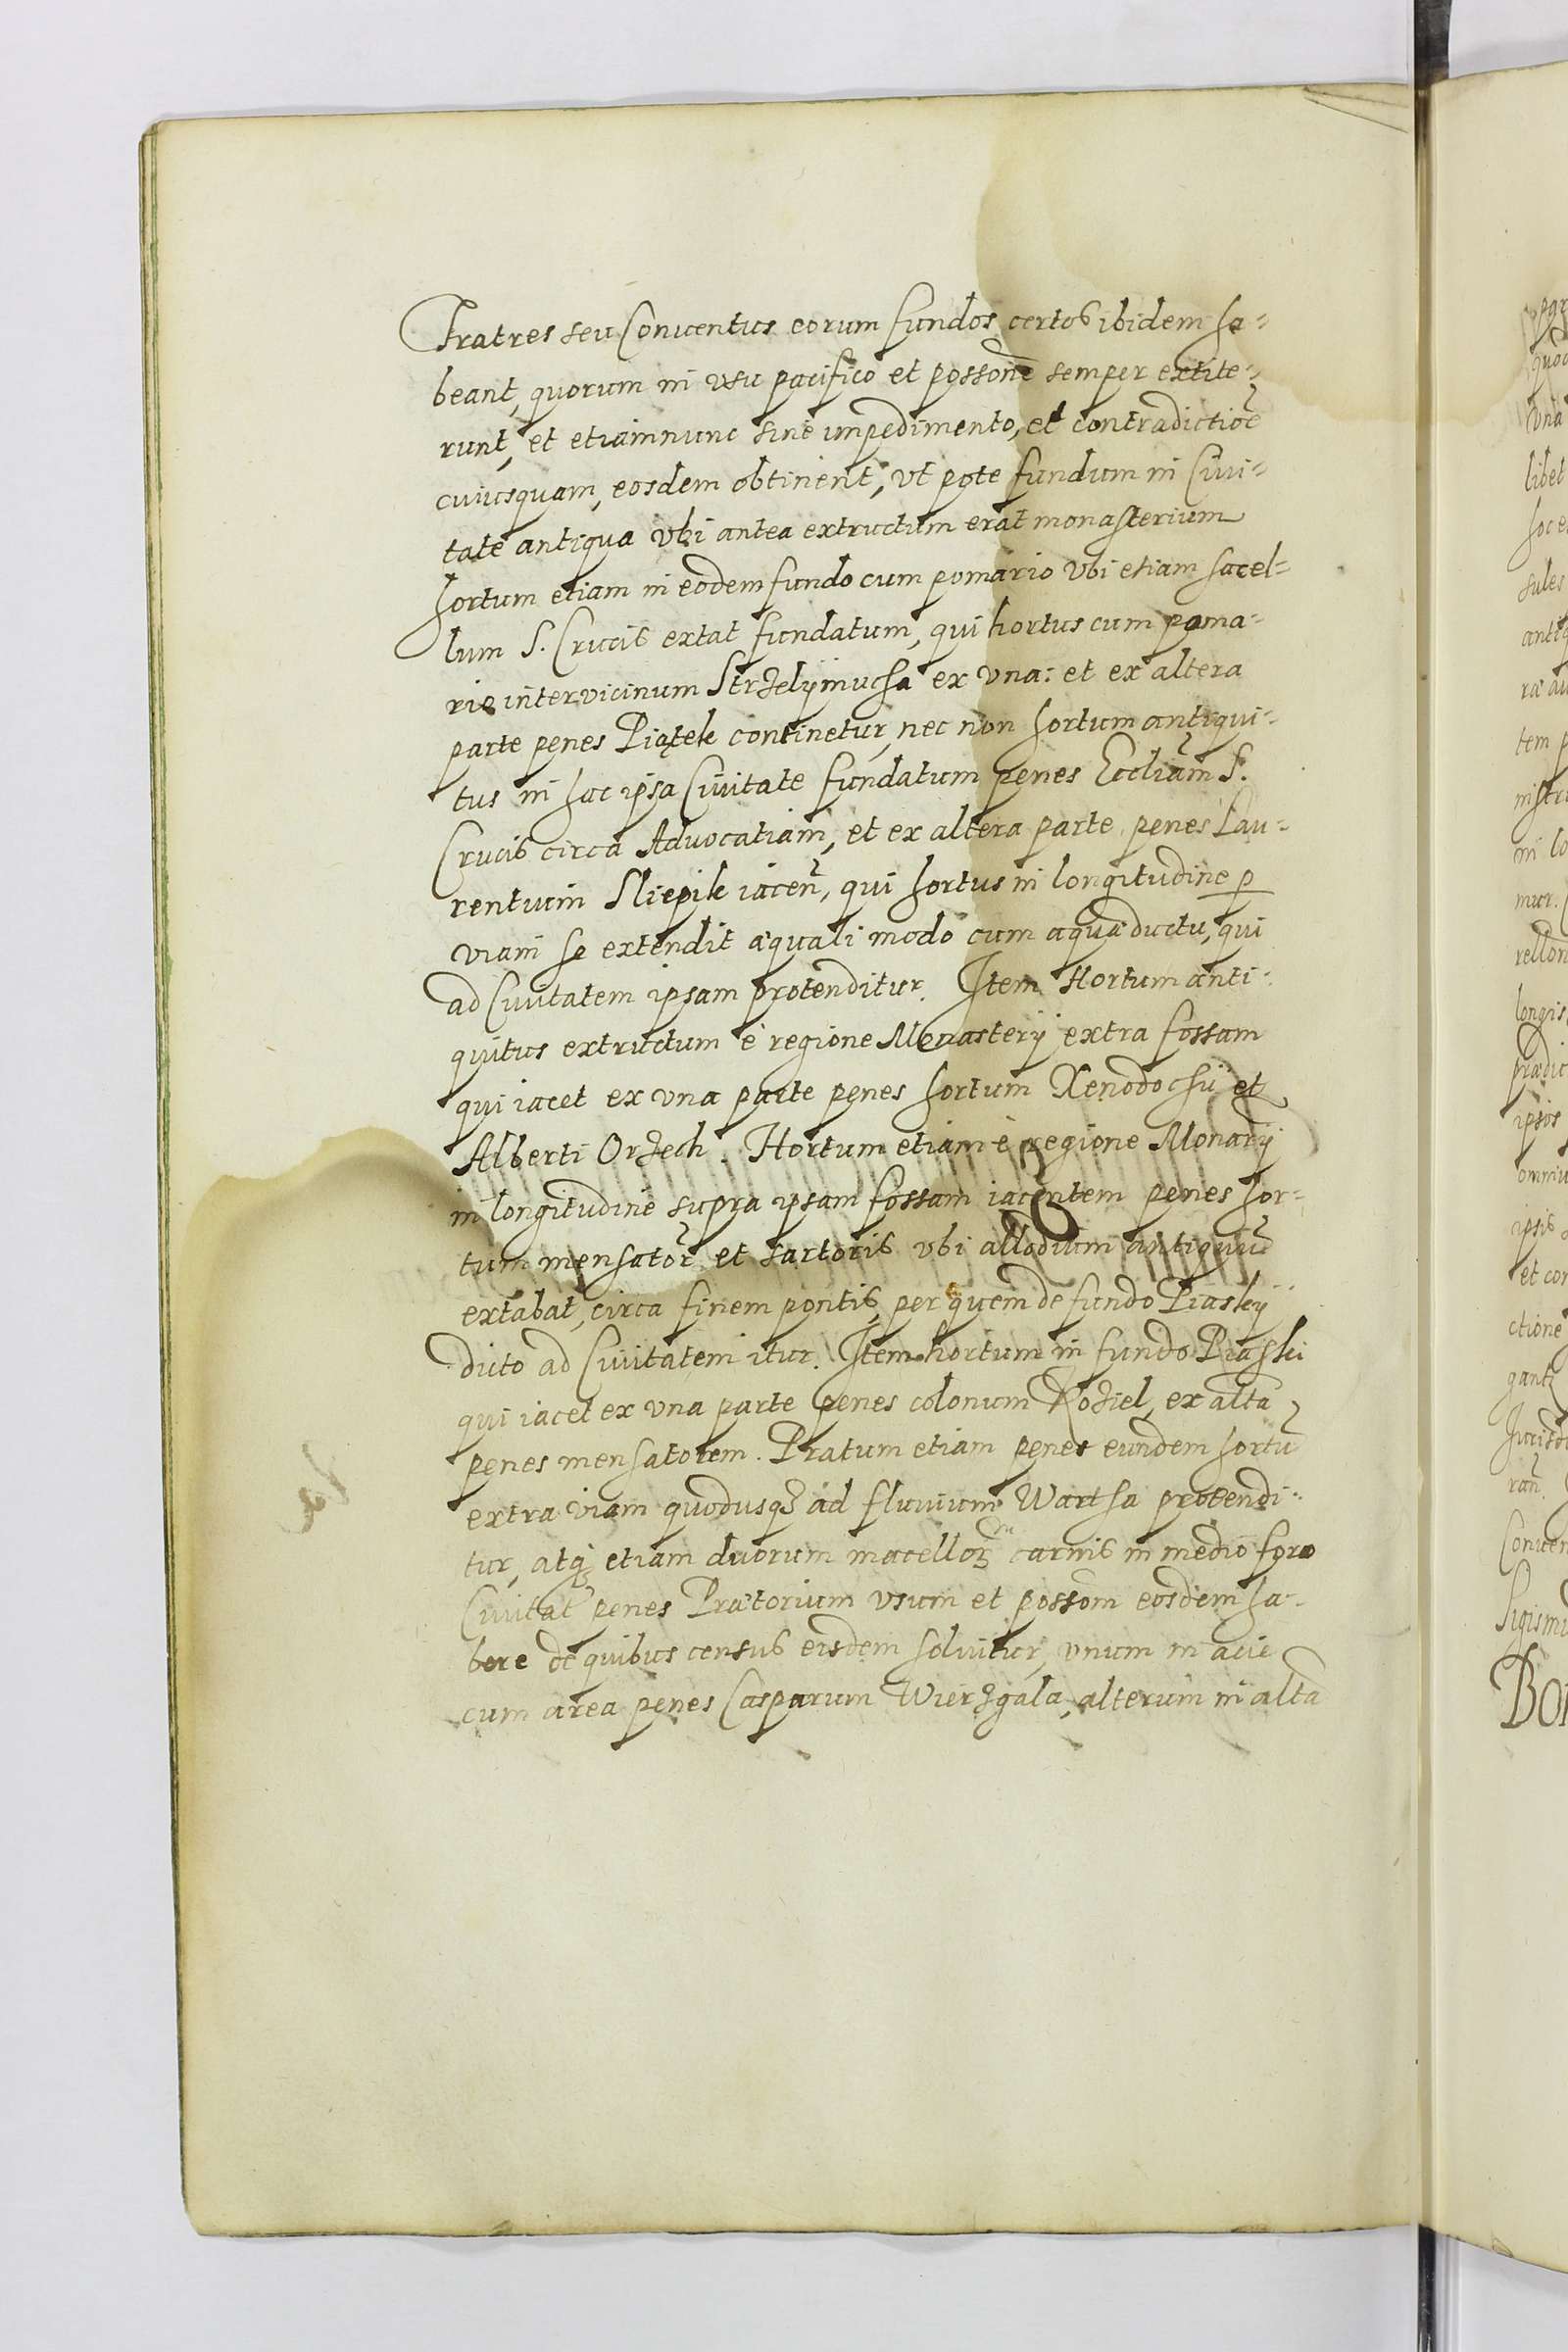 Fratres seu Conuentus eorum fundos certos ibidem ha=
beant, quorum in vsu pacifico et possone semper extite=
runt, et etiamnunc sine impedimento, et contradictioe
cuiusquam, eosdem obtinent, vt pote fundum in Ciui=
tate antiqua vbi antea extructum erat monasterium
hortum etiam in eodem fundo cum pomario vbi etiam sacel=
lum S. Crucis extat fundatum, qui hortus cum poma=
rio inter vicinum Strzelijmucha ex vna: et ex altera
parte penes Piątek continetur, nec non hortum antiqui=
tus in hac ipsa Ciuitate fundatum penes Eccliam S.
Crucis circa Aduocatiam, et ex altera parte penes Lau=
rentium Sliepik iacen, qui hortus in longitudine p
viam se extendit æquali modo cum aquæductu, qui
ad Ciuitatem ipsam protenditur. Item Hortum anti=
quitus extructum è regione Monasterij extra fossam
qui iacet ex vna parte penes hortum Xenodochii et
Alberti Orzech. Hortum etiam è regione Monarij
in longitudine supra ipsam fossam iacentem penes hor=
tum mensator et sartoris vbi allodium antiquu
extabat, circa finem pontis, per quem de fundo Piaskij
dicto ad Ciuitatem itur. Item hortum in fundo Piaski
qui iacet ex vna parte penes colonum Koziel, ex alta
penes mensatorem. Pratum etiam penes eundem hortu
extra viam quodusq ad fluuium Wartha protendi=
tur, atq etiam duorum macellor carnis in medio foro
Ciuitat penes Prætorium vsum et possom eosdem ha=
bere de quibus census eisdem soluitur, vnum in acie
cum area penes Casparum Wierzgala, alterum in alta